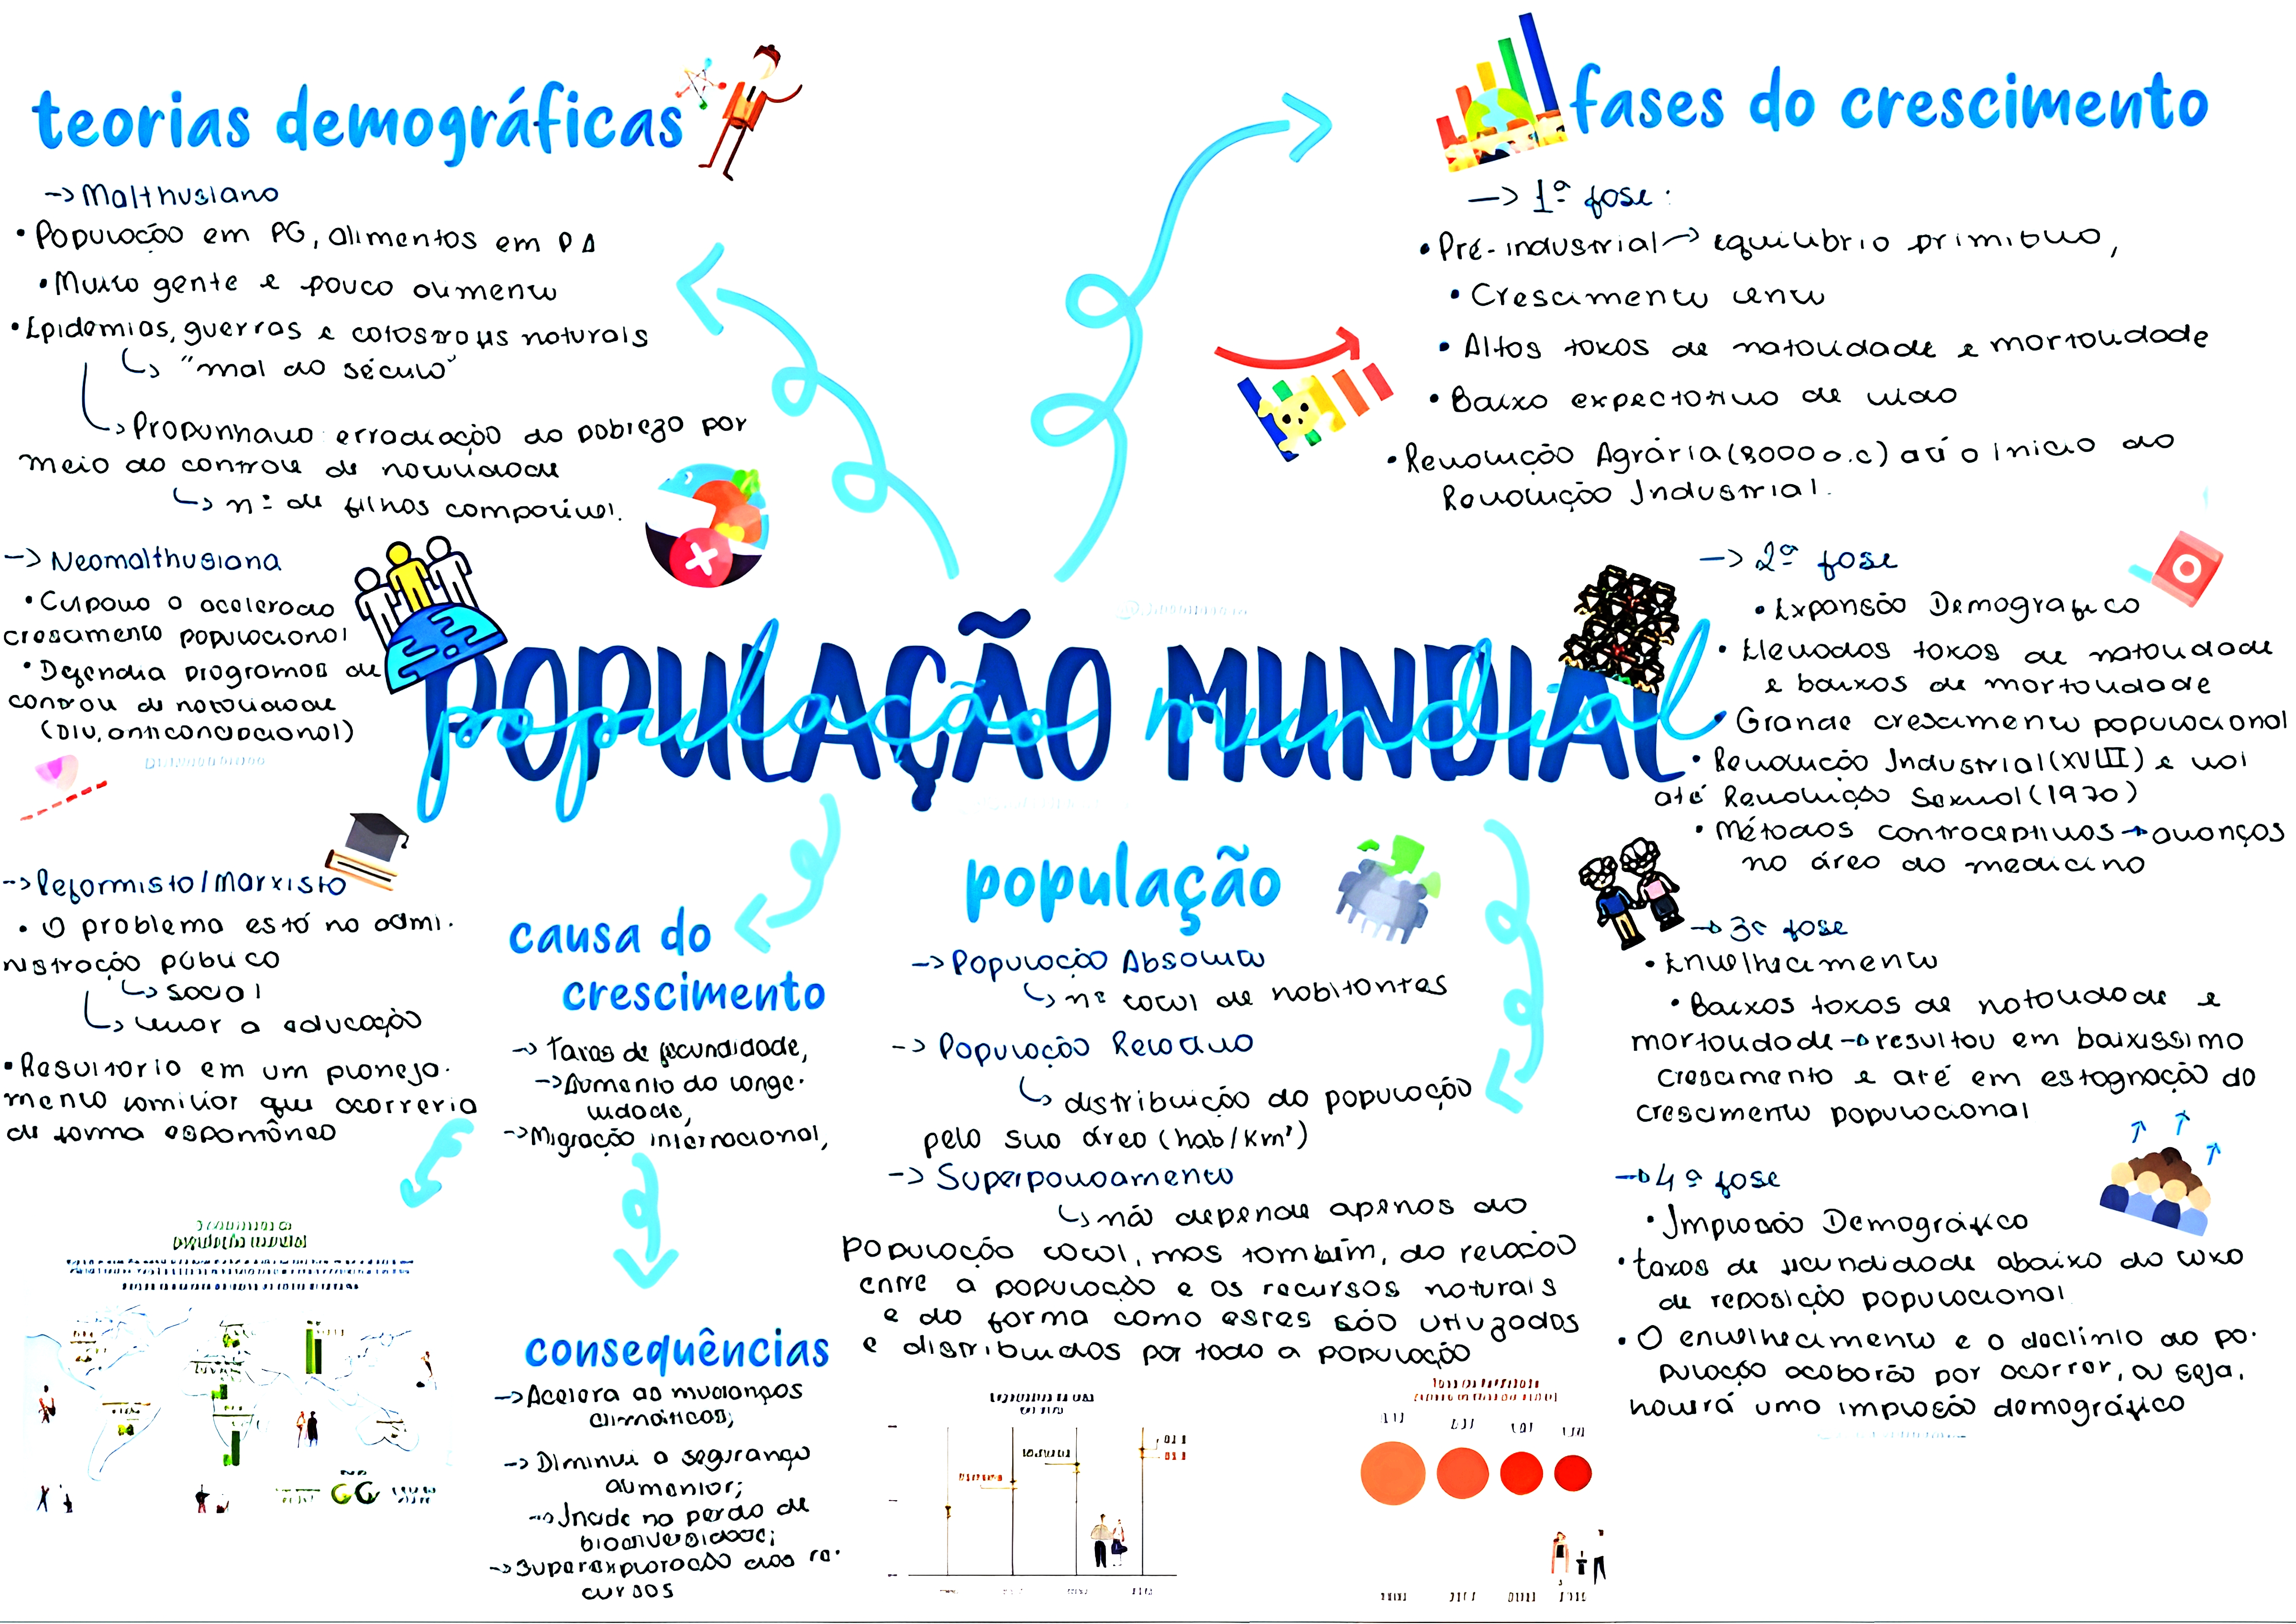 teorias demográficas
→ Malthusiano
• População em PG, alimentos em PA
• Muita gente e pouco alimento
• Epidemias, guerras e catástrofes naturais
↳ "mal do século"
↳ Propunhava erradiação da pobreza por
meio do controle de natalidade
↳ nº de filhos compatível.
→ Neomalthusiana
• Culpava o acelerado
crescimento populacional
• Defendia programas de
controle de natalidade
(DIU, anticoncepcional)
→ Reformista/Marxista
• O problema está na admi-
nistração pública
↳ social
↳ levar a educação
• Resultaria em um planeja-
mento familiar que ocorreria
de forma espontânea
população mundial
POPULAÇÃO MUNDIAL
população mundial
causa do
crescimento
→ Taxas de fecundidade,
→ Aumento da longe-
vidade,
→ Migração internacional,
consequências
→ Acelera as mudanças
climáticas;
→ Diminui a segurança
alimentar;
→ Incide na perda de
biodiversidade;
→ Superexploração dos re-
cursos
população
→ População Absoluta
↳ nº total de habitantes
→ População Relativa
↳ distribuição da população
pela sua área (hab/Km²)
→ Superpovoamento
↳ não depende apenas da
população total, mas também, da relação
entre a população e os recursos naturais
e da forma como estes são utilizados
e distribuidos por toda a população
fases do crescimento
→ 1ª fase:
• Pré-industrial → equilíbrio primitivo,
• Crescimento lento
• Altas taxas de natalidade e mortalidade
• Baixa expectativa de vida
• Revolução Agrária (8000 a.c) até o início da
Revolução Industrial.
→ 2ª fase
• Expansão Demográfica
• Elevadas taxas de natalidade
e baixas de mortalidade
• Grande crescimento populacional
• Revolução Industrial (XVIII) e vai
até Revolução Sexual (1970)
• Métodos contraceptivos → avanços
na área da medicina
→ 3ª fase
• Envelhecimento
• Baixas taxas de natalidade e
mortalidade → resultou em baixissimo
crescimento e até em estagnação do
crescimento populacional
→ 4ª fase
• Implosão Demográfica
• taxas de fecundidade abaixo da taxa
de reposição populacional
• O envelhecimento e o declínio da po-
pulação acabarão por ocorrer, ou seja,
haverá uma implosão demográfica